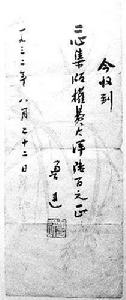 今收到
二心集版權費大洋陸百元正
魯迅
一九三二年八月二十二日